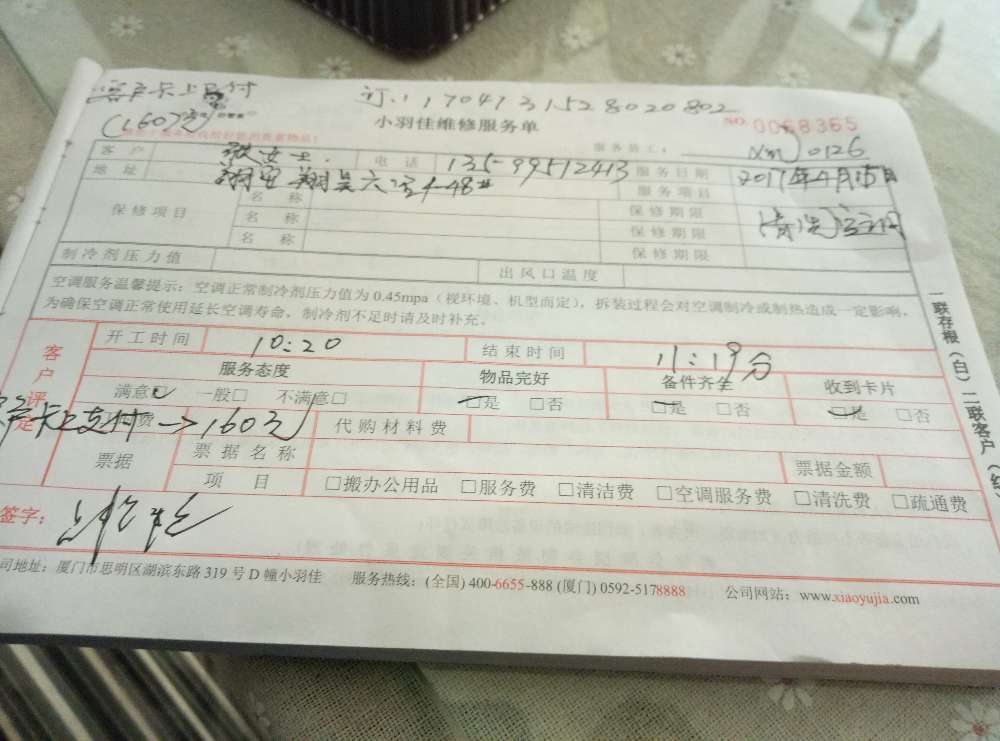 客户卡上已付
订:1170413152802 0802
(160元)
小羽佳维修服务单
NO. 0068365
服务员工: xm 0126
客户 女士. 电话 135-99512413 服务日期 2017年4月15日
地址 翔安 服务项目 清洗空调
保修项目 名称 保修期限
名称 保修期限
名称 保修期限
制冷剂压力值 出风口温度
空调服务温馨提示:空调正常制冷剂压力值为0.45mpa(视环境、机型而定),拆装过程会对空调制冷或制热造成一定影响,
为确保空调正常使用延长空调寿命,制冷剂不足时请及时补充。
客户评定
开工时间 10:20 结束时间 11:19分
服务态度 物品完好 备件齐全 收到卡片
满意□ 一般□ 不满意□ □是 □否 □是 □否 □是 □否
卡上支付→160元 费 代购材料费
票据 票据名称 票据金额
项目 □搬办公用品 □服务费 □清洁费 □空调服务费 □清洗费 □疏通费
签字:
司地址:厦门市思明区湖滨东路319号D幢小羽佳 服务热线:(全国)400-6655-888 (厦门) 0592-5178888 公司网站:www.xiaoyujia.com
一联存根(白)二联客户(红